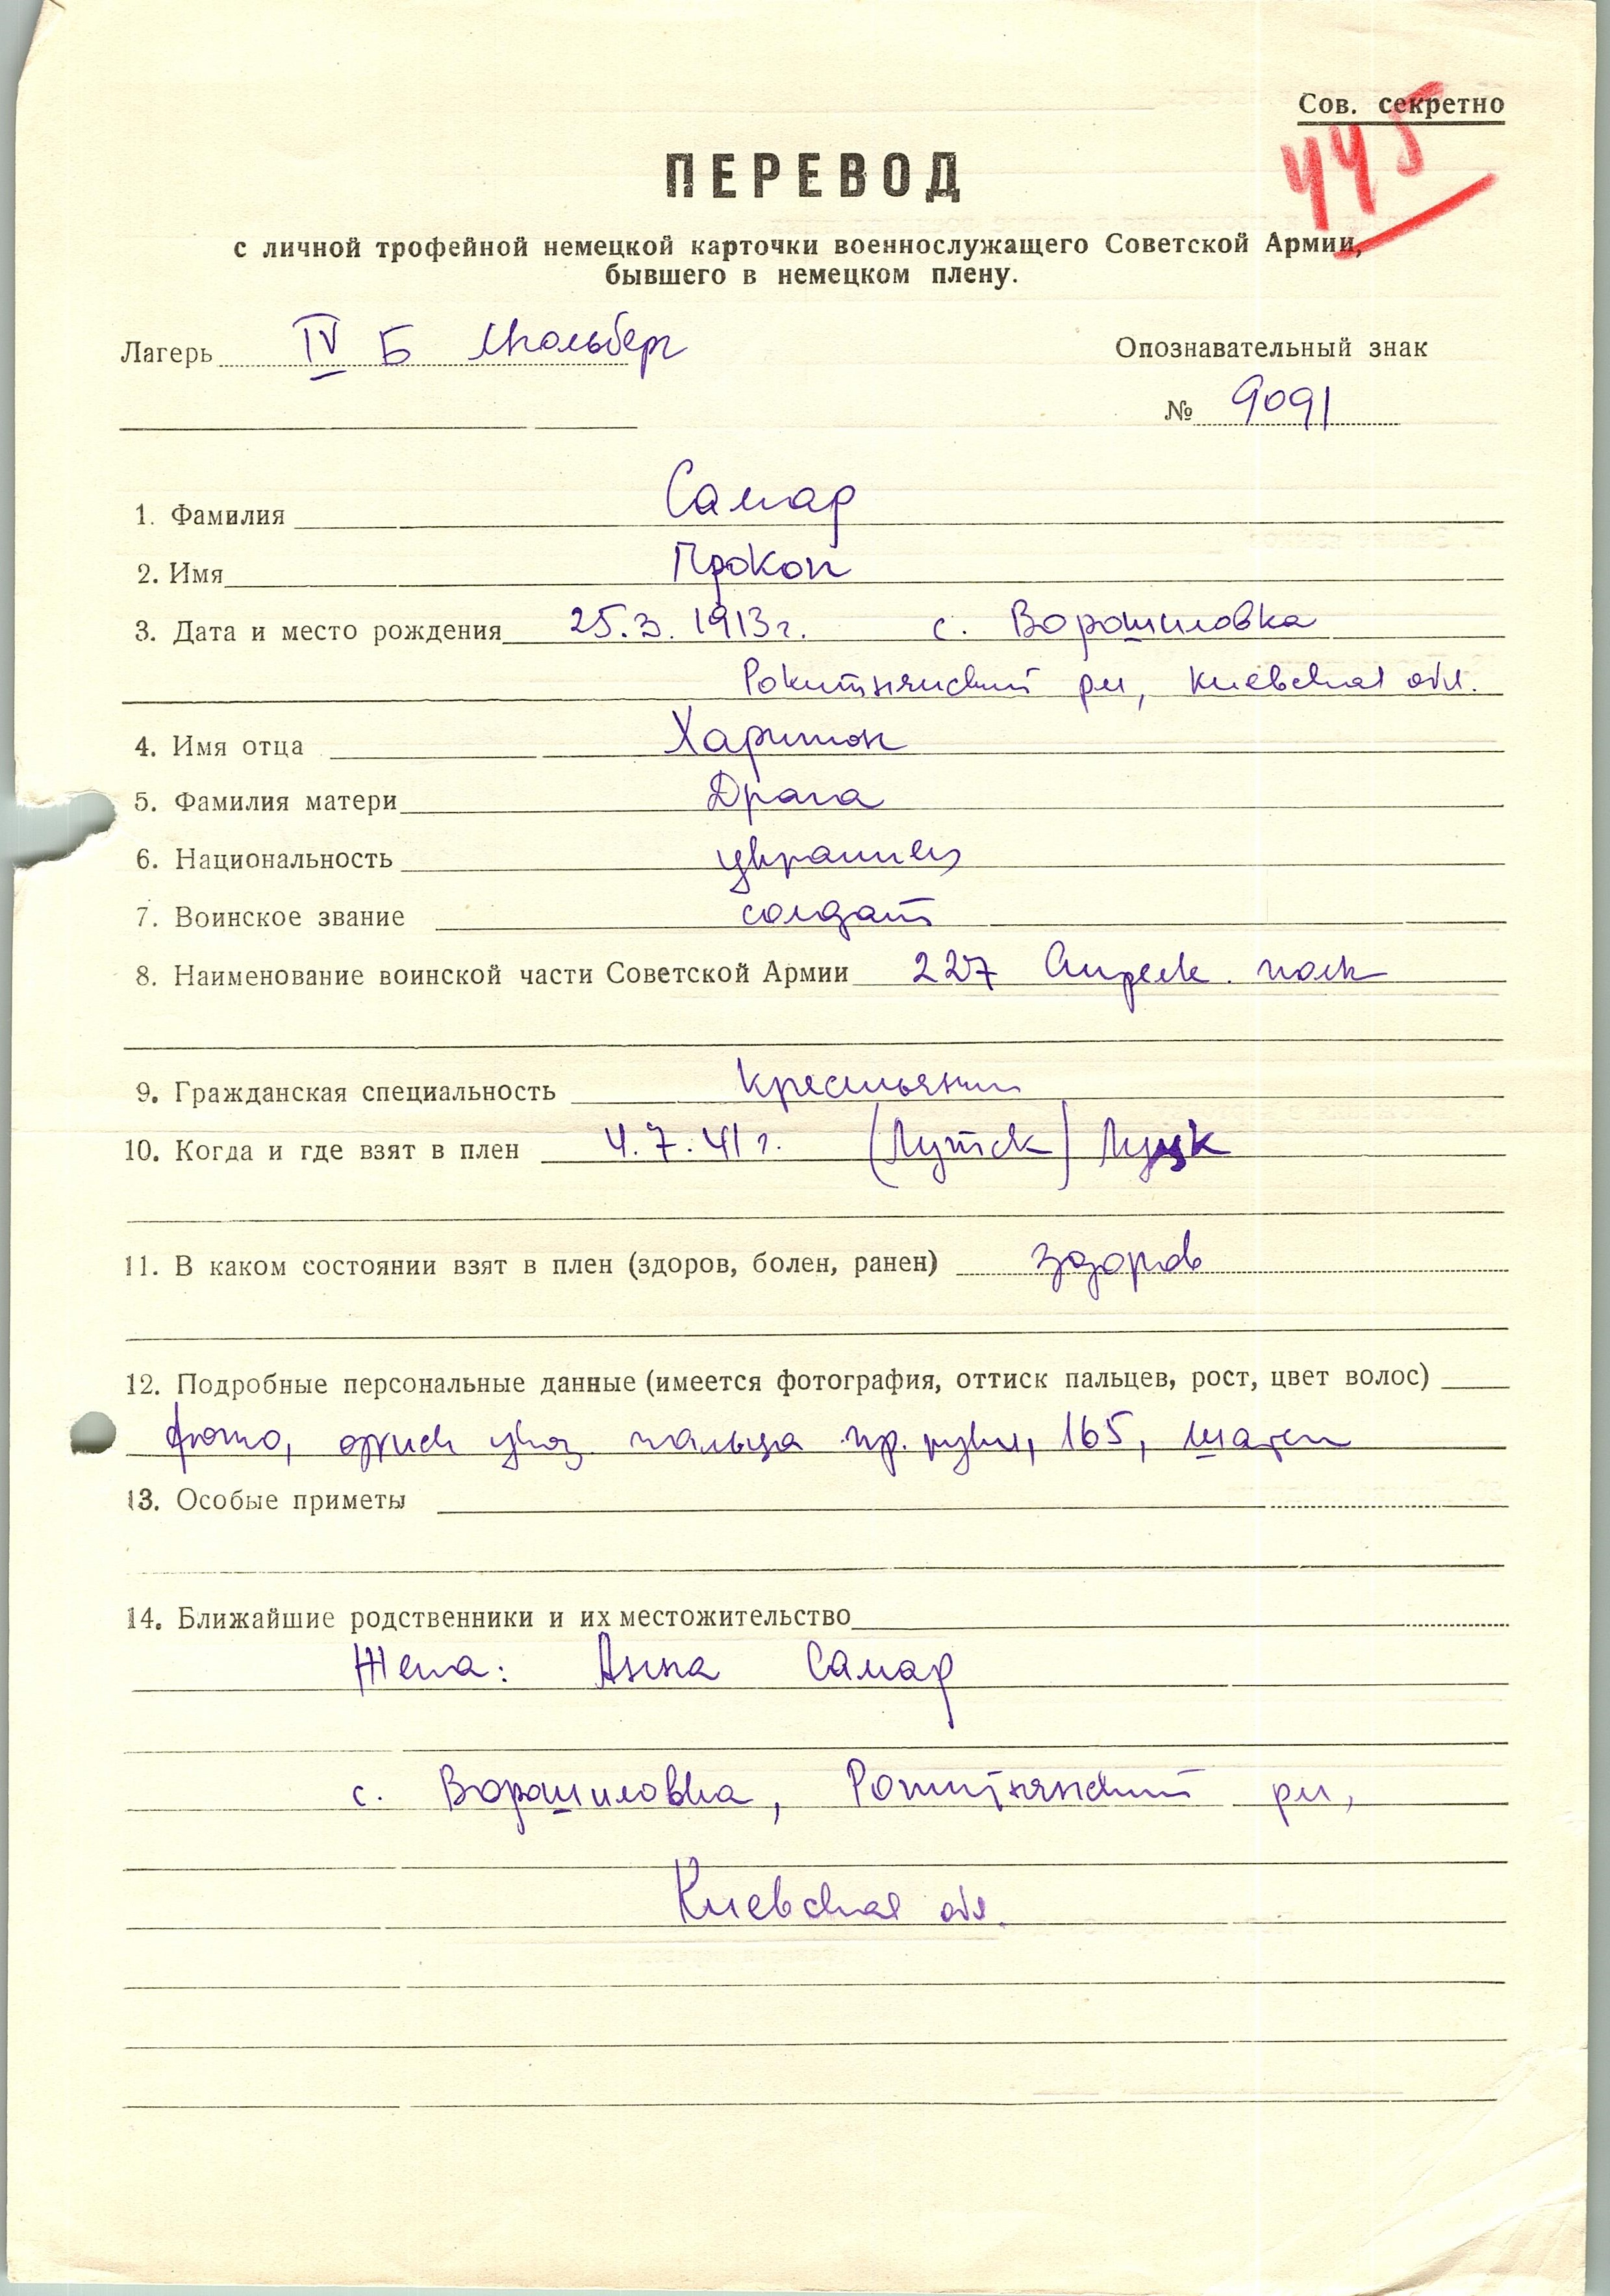 Сов. секретно
445
ПЕРЕВОД
с личной трофейной немецкой карточки военнослужащего Советской Армии,
бывшего в немецком плену.
Лагерь IV Б Мюльберг Опознавательный знак
№ 9091
1. Фамилия Самар
2. Имя Прокоп
3. Дата и место рождения 25.3.1913 г. с. Ворошиловка
Рокитнянский рн, Киевская обл.
4. Имя отца Харитон
5. Фамилия матери Драга
6. Национальность украинец
7. Воинское звание солдат
8. Наименование воинской части Советской Армии 227 полк
9. Гражданская специальность крестьянин
10. Когда и где взят в плен 4.7.41 г. (Лутск) Луцк
11. В каком состоянии взят в плен (здоров, болен, ранен) здоров
12. Подробные персональные данные (имеется фотография, оттиск пальцев, рост, цвет волос)
фото, оттиск указ. пальца пр. руки, 165, шатен
13. Особые приметы
14. Ближайшие родственники и их местожительство
Жена: Анна Самар
с. Ворошиловка, Рокитнянский рн,
Киевская обл.